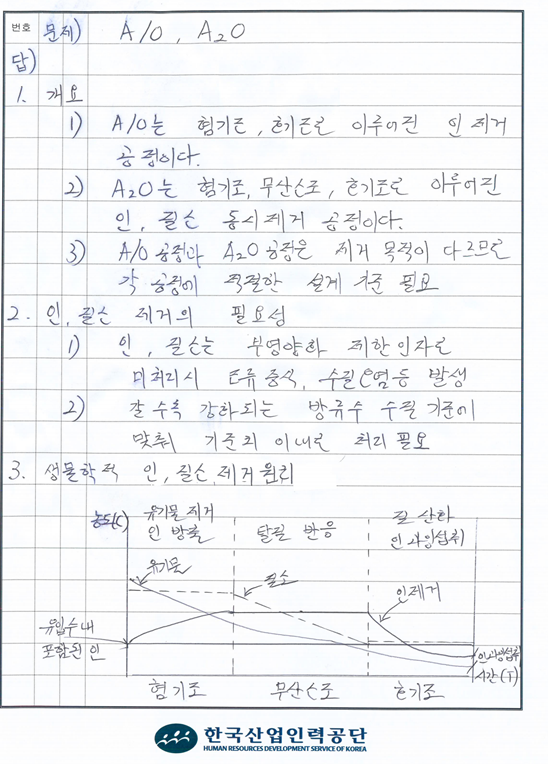 번호 문제) A/O, A2O
답)
1. 개요
1) A/O는 혐기조, 호기조로 이루어진 인 제거
공정이다.
2) A2O는 혐기조, 무산소조, 호기조로 이루어진
인, 질소 동시제거 공정이다.
3) A/O 공정과 A2O 공정은 제거 목적이 다르므로
각 공정에 적절한 설계 기준 필요
2. 인, 질소 제거의 필요성
1) 인, 질소는 부영양화 제한인자로
미처리시 조류증식, 수질오염등 발생
2) 갈수록 강화되는 방류수 수질 기준에
맞춰 기준치 이내로 처리 필요
3. 생물학적 인, 질소 제거 원리
농도(C) 유기물제거 질산화
인 방출 탈질 반응 인 과잉섭취
유기물 질소
인제거
유입수내
포함된 인 인과잉섭취
시간(T)
혐기조 무산소조 호기조
한국산업인력공단
HUMAN RESOURCES DEVELOPMENT SERVICE OF KOREA